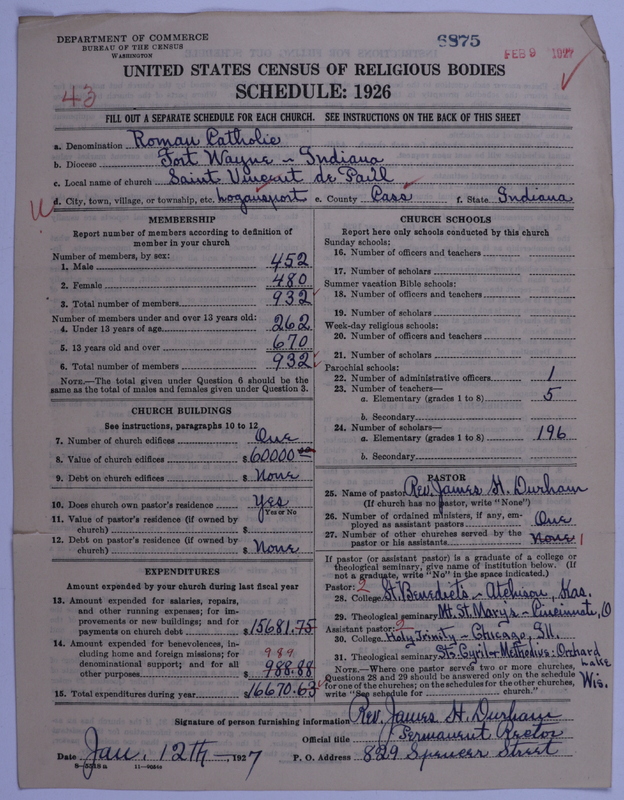 DEPARTMENT OF COMMERCE
BUREAU OF THE CENSUS
WASHINGTON
8875
FEB 9 1927
UNITED STATES CENSUS OF RELIGIOUS BODIES
SCHEDULE: 1926
43
FILL OUT A SEPARATE SCHEDULE FOR EACH CHURCH. SEE INSTRUCTIONS ON THE BACK OF THIS SHEET
a. Denomination Roman Catholic
b. Diocese Fort Wayne - Indiana
c. Local name of church Saint Vincent de Paul
d. City, town, village, or township, etc. Logansport e. County Cass f. State Indiana
MEMBERSHIP
Report number of members according to definition of
member in your church
Number of members, by sex:
1. Male 452
2. Female 480
3. Total number of members 932
Number of members under and over 13 years old:
4. Under 13 years of age 262
5. 13 years old and over 670
6. Total number of members 932
NOTE.—The total given under Question 6 should be the
same as the total of males and females given under Question 3.
CHURCH BUILDINGS
See instructions, paragraphs 10 to 12
7. Number of church edifices One
8. Value of church edifices $60000 00
9. Debt on church edifices $ None
10. Does church own pastor's residence Yes
(Yes or No)
11. Value of pastor's residence (if owned by
church) $
12. Debt on pastor's residence (if owned by
church) $ None
EXPENDITURES
Amount expended by your church during last fiscal year
13. Amount expended for salaries, repairs,
and other running expenses; for im-
provements or new buildings; and for
payments on church debt $15681.75
14. Amount expended for benevolences, in-
cluding home and foreign missions; for 989
denominational support; and for all
other purposes $ 988.88
15. Total expenditures during year $16670.63
CHURCH SCHOOLS
Report here only schools conducted by this church
Sunday schools:
16. Number of officers and teachers
17. Number of scholars
Summer vacation Bible schools:
18. Number of officers and teachers
19. Number of scholars
Week-day religious schools:
20. Number of officers and teachers
21. Number of scholars
Parochial schools:
22. Number of administrative officers 1
23. Number of teachers—
a. Elementary (grades 1 to 8) 5
b. Secondary
24. Number of scholars—
a. Elementary (grades 1 to 8) 196
b. Secondary
PASTOR
25. Name of pastor Rev. James H. Durham
(If church has no pastor, write "None")
26. Number of ordained ministers, if any, em-
ployed as assistant pastors One
27. Number of other churches served by the
pastor or his assistants None 1
If pastor (or assistant pastor) is a graduate of a college or
theological seminary, give name of institution below. (If
not a graduate, write "No" in the space indicated.)
Pastor: 2
28. College St. Benedicts - Atchison, Kas.
29. Theological seminary Mt. St. Marys - Cincinnati, O
Assistant pastor: 2
30. College Holy Trinity - Chicago, Ill.
31. Theological seminary Sts. Cyril - Methodius: Orchard
Lake
Wis.
NOTE.—Where one pastor served two or more churches,
Questions 28 and 29 should be answered only on the schedule
for one of the churches; on the schedules for the other churches,
write "See schedule for church."
Signature of person furnishing information Rev. James H. Durham
Official title Permanent Rector
Date Jan. 12th -, 1927 P. O. Address 829 Spencer Street
8—5518a 11—9084a